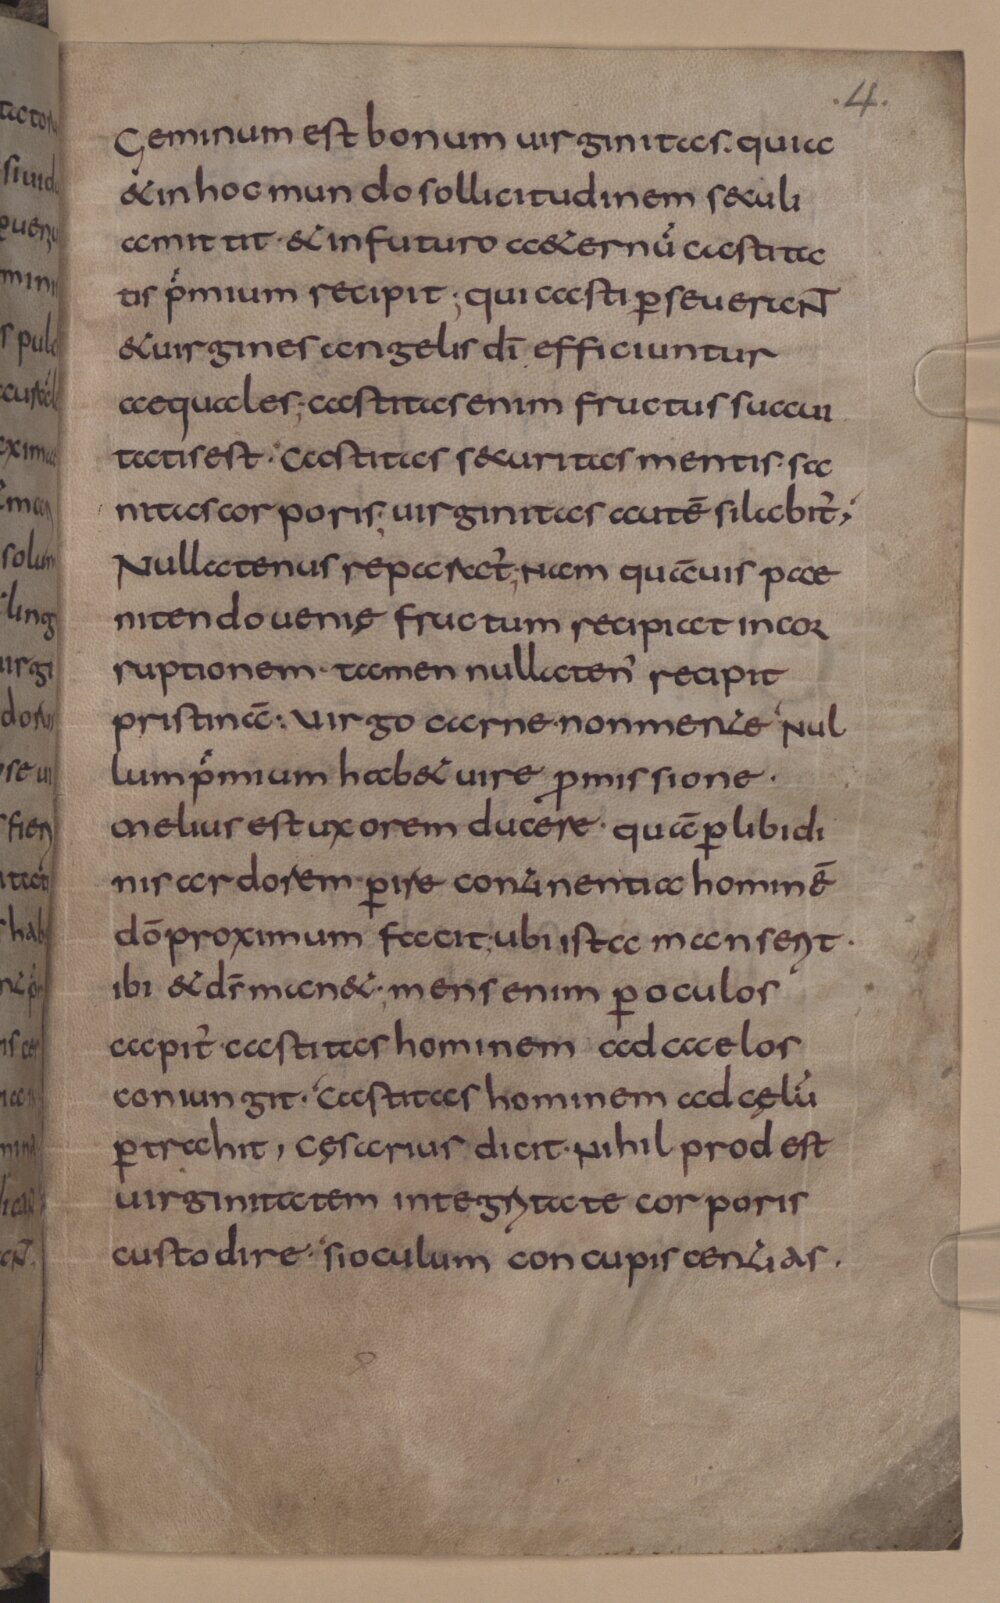 .4.
Geminum est bonum uirginitas. quia
&in hoc mundo sollicitudinem s&culi
amittit · & in futuro a&ernū castita
tis p̄mium recipit ; qui casti ꝑseueraɴ̄t
& uirgines angelis dī efficiuntur
aequales ; castitas enim fructus suaui
tatis est · Castitas s&curitas mentis · sa
nitas corporis ; uirginitas autē si labit̄ ;
Nullatenus reparat̄ ; Nam quāuis pae
nitendo uenię fructum recipiat incor
ruptionem · tamen nullaten' recipit
pristinā : uirgo carne · non mente Nul
lum p̄mium hab& uire ꝓmissione ·
Melius est uxorem ducere · quā ꝑ libidi
nis ardorem ꝑire continentia hominē
dō proximum facit ; ubi ista manserit ·
ibi & dn̄s man& ; mens enim ꝑ oculos
capit̄ castitas hominem ad caelos
coniungit · Castitas hominem ad cęlū
ꝑtrahit , Cęsarius dicit · Nihil prodest
uirginitatem integritate corporis
custodire · si oculum concupiscentias .